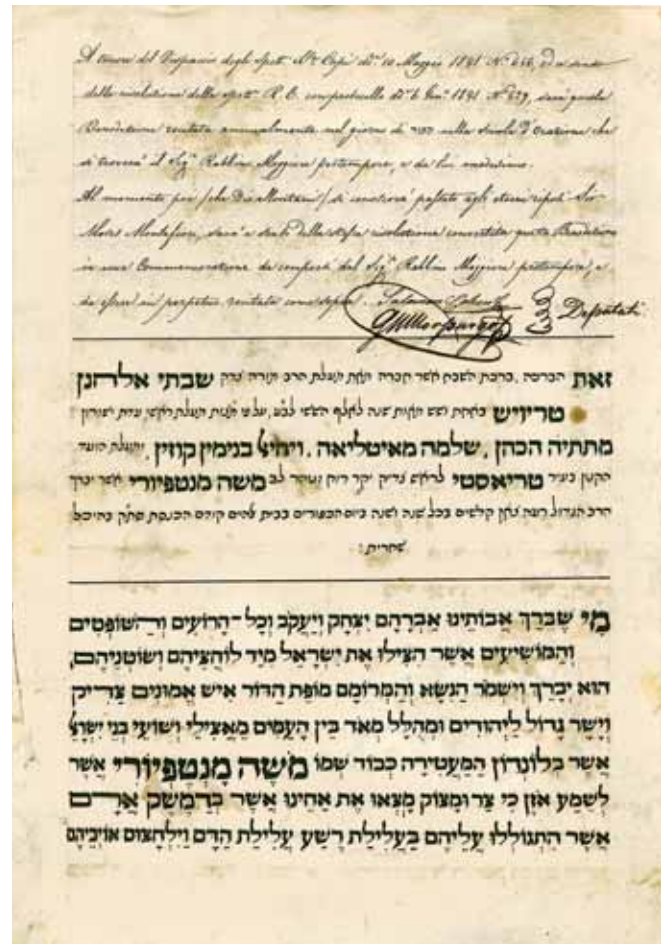 A tenore del Dispaccio degli Spett. Capi dì 10 Maggio 1841 N° 646, ed a senso
della risoluzione della spett. R. C. dì 6 1841 N° 629, sarà questa
Benedizione recitata annualmente nel giorno di כפור nella Scuola d'Orazione che
si troverà il Sigr Rabbino Maggiore protempore, e da lui medesimo.
Al momento poi (che Dio allontani) di passato agli eterni riposi Sir
Moses Montefiore, sarà a della stessa risoluzione convertita questa Benedizione
in una Commemorazione da comporsi dal Sigr Rabbino Maggiore protempore, e
da essere in perpetuo recitata come sopra.
Deputati
זאת הברכה, ברכת השבת אשר חברה הרב שבתי אלחנן
טריויש באחת ושש מאות שנה לאלף הששי ראשי עדת ישורון
מתתיה הכהן, שלמה מאיטליאה, ויחיא בנימין קוזין,
הקטן בעיר טריאסטי לראש צדיק יקר רוח וטהר לב משה מנטפיורי אשר יברך
הרב הגדול קלשים בכל שנה ושנה ביום הכפורים בבית אלהים קודם הכנסת בהיכל
שחרית:
מִי שֶׁבֵּרַךְ אֲבוֹתֵינוּ אַבְרָהָם יִצְחָק וְיַעֲקֹב וְכָל־הָרוֹעִים וְהַשּׁוֹפְטִים
וְהַמּוֹשִׁיעִים אֲשֶׁר הִצִּילוּ אֶת יִשְׂרָאֵל מִיַּד לוֹחֲצֵיהֶם וְשׂוֹטְנֵיהֶם,
הוּא יְבָרֵךְ וְיִשְׁמֹר הַנִּשָּׂא וְהַמְרוֹמָם מוֹפֵת הַדּוֹר אִישׁ אֱמוּנִים צַדִּיק
וְיָשָׁר גָּדוֹל לַיְּהוּדִים וּמְהֻלָּל מְאֹד בֵּין הָעַמִּים מֵאֲצִילֵי וְשׁוֹעֵי בְּנֵי יִשְׂרָאֵל
אֲשֶׁר בְּלוֹנְדוֹן הַמַּעֲטִירָה כְּבוֹד שְׁמוֹ מֹשֶׁה מֻנְטֶפְיוֹרִי אֲשֶׁר
לְשֵׁמַע אֹזֶן כִּי צַר וּמָצוֹק מָצְאוּ אֶת אַחֵינוּ אֲשֶׁר בְּדַמֶּשֶׂק אֲרָם
אֲשֶׁר הִתְגּוֹלְלוּ עֲלֵיהֶם בַּעֲלִילַת רֶשַׁע עֲלִילַת הַדָּם וַיִּלְחָצוּם אוֹיְבֵיהֶם